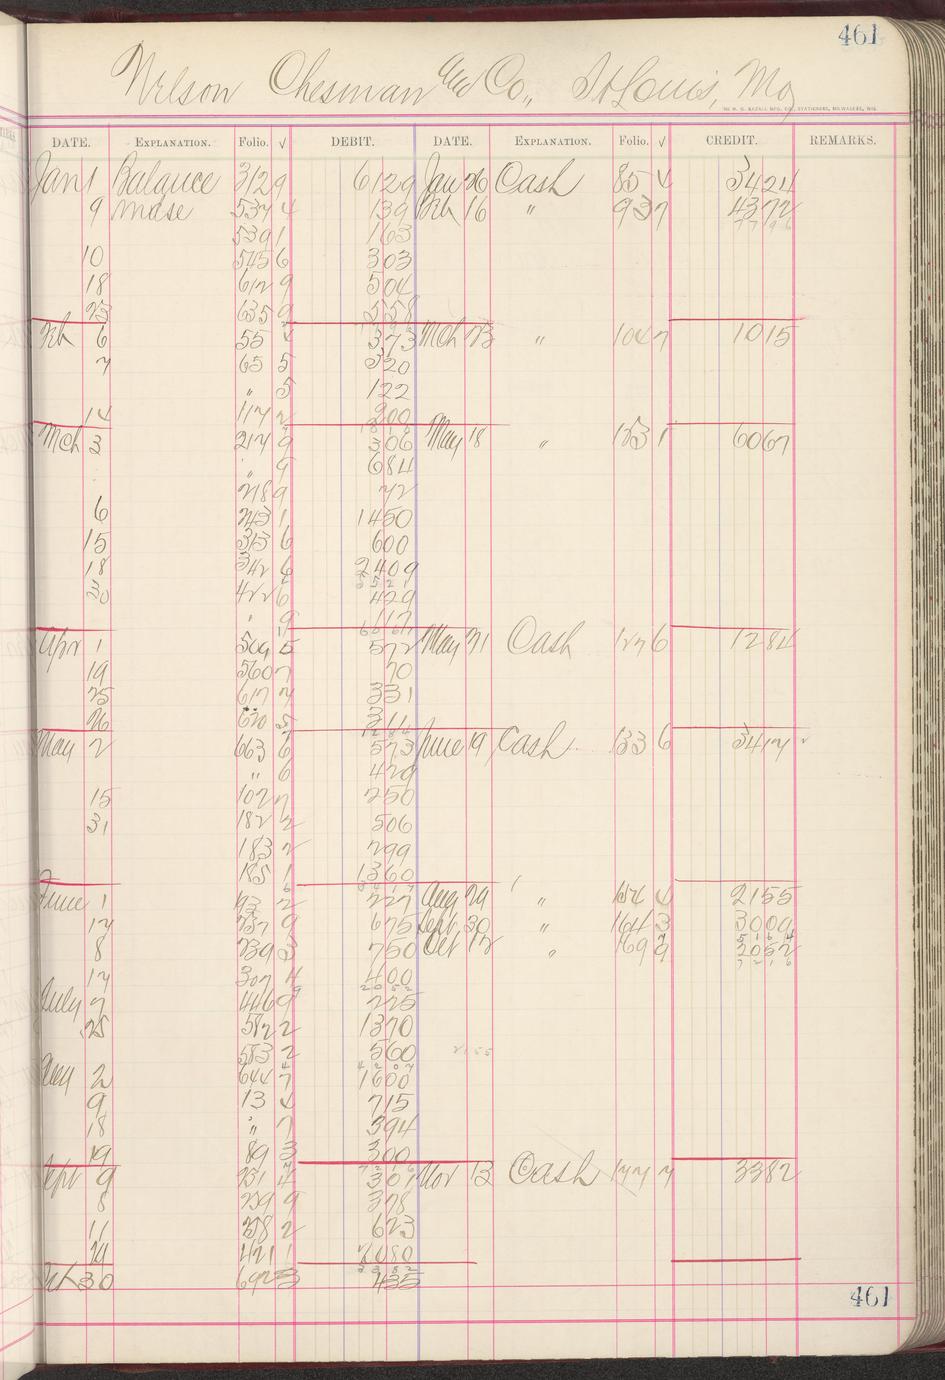 461
Nelson Chesman and Co., St Louis, Mo
DATE. EXPLANATION. Folio. √ DEBIT. DATE. EXPLANATION. Folio. √ CREDIT. REMARKS.
Jan 1 Balance 312 9 6129 Jan 26 Cash 85 4 3424
9 mdse 537 4 139 Feb 16 " 93 7 4372
539 1 163
10 545 6 303
18 612 9 504
23 635 9 558
Feb 6 55 4 373 Mch 23 " 104 7 1015
7 65 5 320
" 5 122
14 117 2 200
Mch 3 217 9 306 May 18 " 123 1 6067
" 9 684
218 9 72
6 243 1 1450
15 313 6 600
18 342 6 2409
20 422 6 429
" 9 117
Apr 1 509 5 572 May 31 Cash 127 6 1284
19 560 7 70
25 617 7 331
26 620 5 311
May 2 663 6 573 June 19 Cash 133 6 3417
" 6 429
15 102 7 250
31 182 2 506
183 2 299
185 1 1360
June 1 193 2 227 Aug 29 " 154 4 2155
17 237 9 675 Sept 30 " 164 3 3009
8 239 3 750 Oct 12 " 169 9 2052
17 307 4 400
July 7 446 9 225
25 582 2 1370
583 2 560
2155
Aug 2 644 7 1600
9 13 4 715
18 " 7 394
19 89 3 300
Sept 9 231 4 301 Nov 13 Cash 177 7 3382
8 239 9 378
11 258 2 623
29 421 1 2080
Oct 30 692 3 435
461